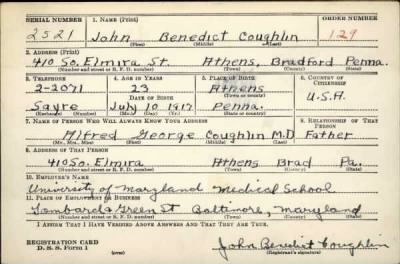 SERIAL NUMBER 1. NAME (Print) ORDER NUMBER
2521 John Benedict Coughlin 129
(First) (Middle) (Last)
2. ADDRESS (Print)
410 So. Elmira St. Athens, Bradford Penna.
(Number and street or R. F. D. number) (Town) (County) (State)
3. TELEPHONE 4. AGE IN YEARS 5. PLACE OF BIRTH 6. COUNTRY OF CITIZENSHIP
2-2071 23 Athens
DATE OF BIRTH (Town or county) U.S.A.
Sayre July 10 1917 Penna.
(Exchange) (Number) (Mo.) (Day) (Yr.) (State or country)
7. NAME OF PERSON WHO WILL ALWAYS KNOW YOUR ADDRESS 8. RELATIONSHIP OF THAT PERSON
Alfred George Coughlin M.D. Father
(Mr., Mrs., Miss) (First) (Middle) (Last)
9. ADDRESS OF THAT PERSON
410 So. Elmira Athens Brad Pa.
(Number and street or R. F. D. number) (Town) (County) (State)
10. EMPLOYER'S NAME
University of Maryland Medical School
11. PLACE OF EMPLOYMENT OR BUSINESS
Lombard & Green St Baltimore, Maryland
(Number and street or R. F. D. number) (Town) (County) (State)
I AFFIRM THAT I HAVE VERIFIED ABOVE ANSWERS AND THAT THEY ARE TRUE.
REGISTRATION CARD
D. S. S. Form 1 (over) John Benedict Coughlin
(Registrant's signature)